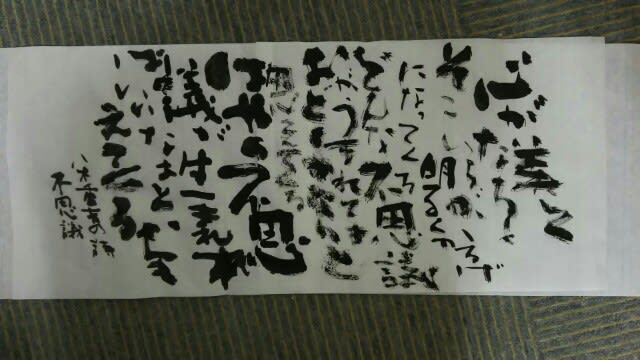 心が美しく
なると
そこいらが
明るくかるげ
になってくる
どんな不思議
がうまれても
おどろかないと
思えてくる
はやく不思
議が生まれれ
ばいいなあと
えてくる
八木重吉の詩
不思議